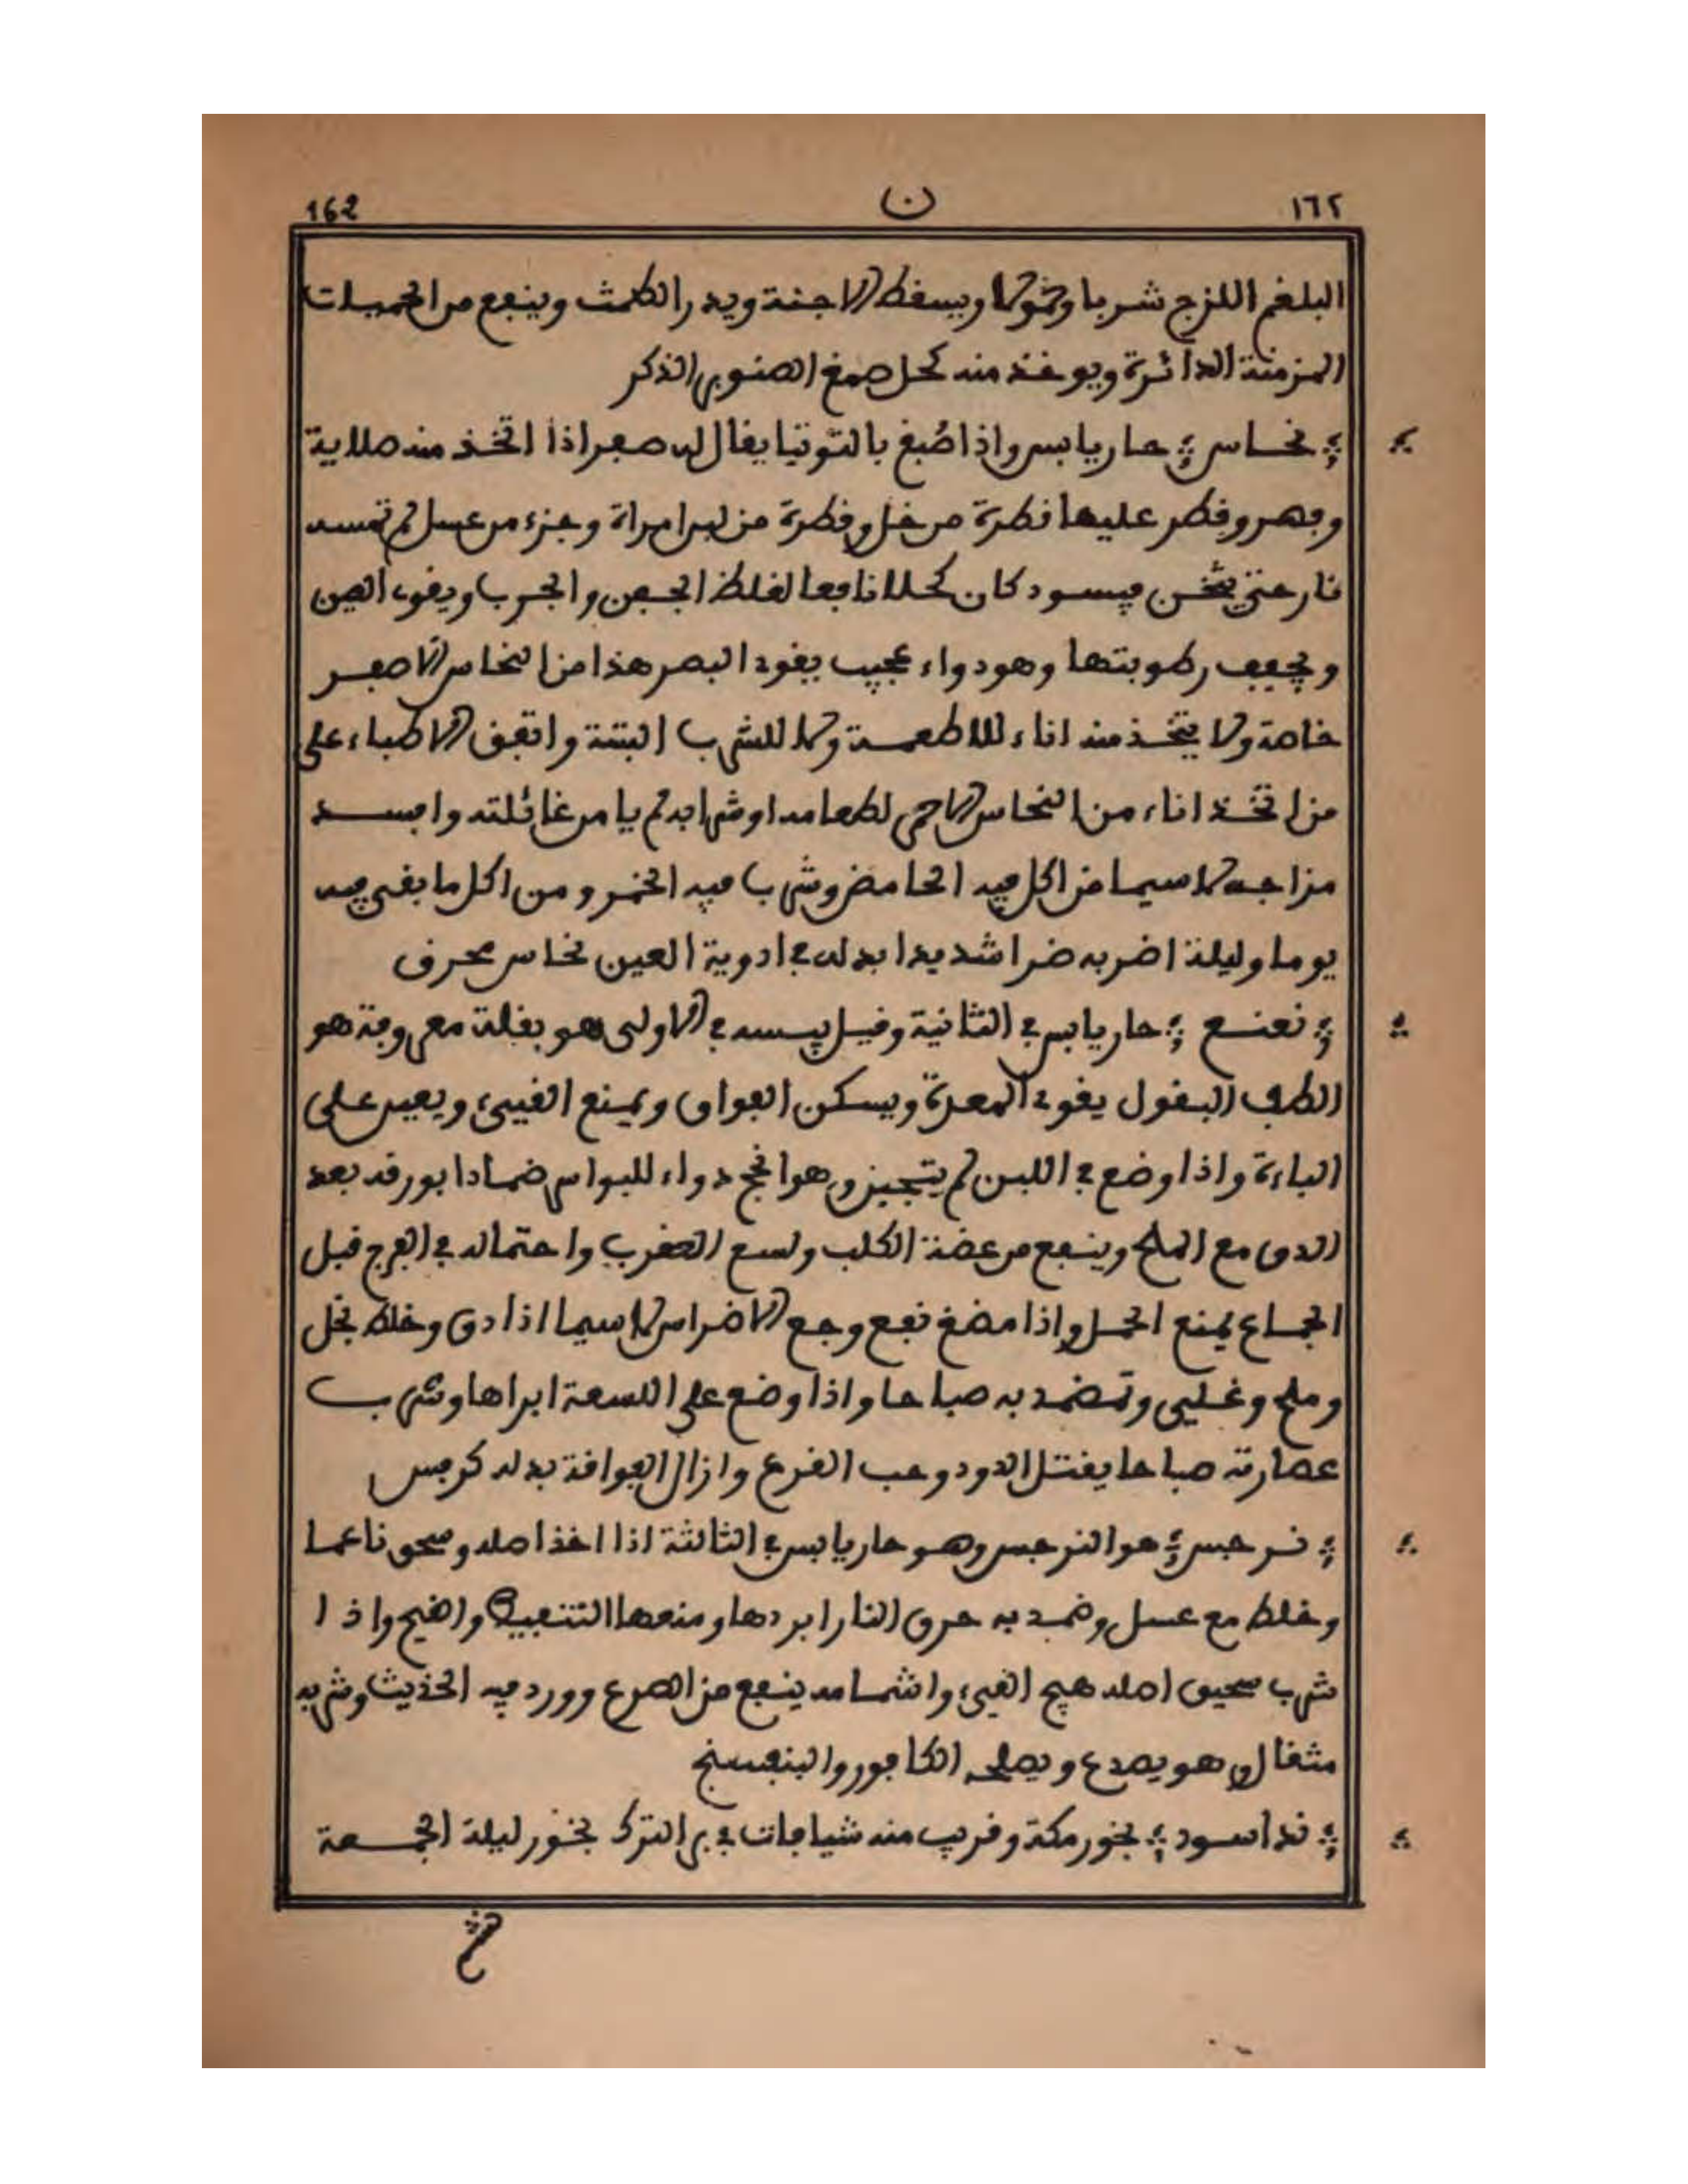 162 ن ١٦٢
البلغم اللزج شربا وحمولا ويسقط الاجنة ويدر الطمث وينفع من الحميات
المزمنة الدائرة ويوخذ منه كحل صمغ الصنوبر الذكر
نحاس حار يابس واذا صُبغ بالتوتيا يقال له صفر اذا اتخذ منه صلاية
وفهر وقطر عليها قطرة من خل وقطرة من لبن امراة وجزء من عسل لم تمسه
نار حتى يثخن فيسود كان كحلا نافعا لغلظ الجفن والجرب ويقوي العين
ويجفف رطوبتها وهو دواء عجيب يقوي البصر هذا من النحاس الاصفر
خاصة ولا يتخذ منه اناء للاطعمة ولا للشرب البتة واتفق الاطباء على
من اتخذ اناء من النحاس الاحمر لطعامه او شرابه لم يامن غائلته وافسد
مزاجه لا سيما من اكل فيه الحامض وشرب فيه الخمر ومن اكل ما بقي فيه
يوما وليلة اضر به ضرا شديدا بدله في ادوية العين نحاس محرق
نعنع حار يابس في الثانية وقيل يبسه في الاولى هو بقلة معروفة هو
الطف البقول يقوي المعدة ويسكن الفواق ويمنع القيىء ويعين على
الباءة واذا وضع في اللبن لم يتجبن وهو انجح دواء للبواسر ضمادا بورقه بعد
الدق مع الملح وينفع من عضة الكلب ولسع العقرب واحتماله في الفرج قبل
الجماع يمنع الحمل واذا مضغ نفع وجع الاضراس لا سيما اذا دق وخلط بخل
وملح وغلي وتضمد به صباحا واذا وضع على اللسعة ابراها وشرب
عصارته صباحا يقتل الدود وحب القرع وازال الفواقة بدله كرفس
نرجس هو النرجس وهو حار يابس في الثالثة اذا اخذ اصله وسحق ناعما
وخلط مع عسل وضمد به حرق النار ابردها ومنعها التنفيط والقيح واذا
شرب سحيق اصله هيج القيىء واشمامه ينفع من الصرع وورد فيه الحديث وشربه
مثقال وهو يصدع ويصلحه الكافور والبنفسنج
ند اسود بخور مكة وقريب منه شيافات في بر الترك بخور ليلة الجمعة